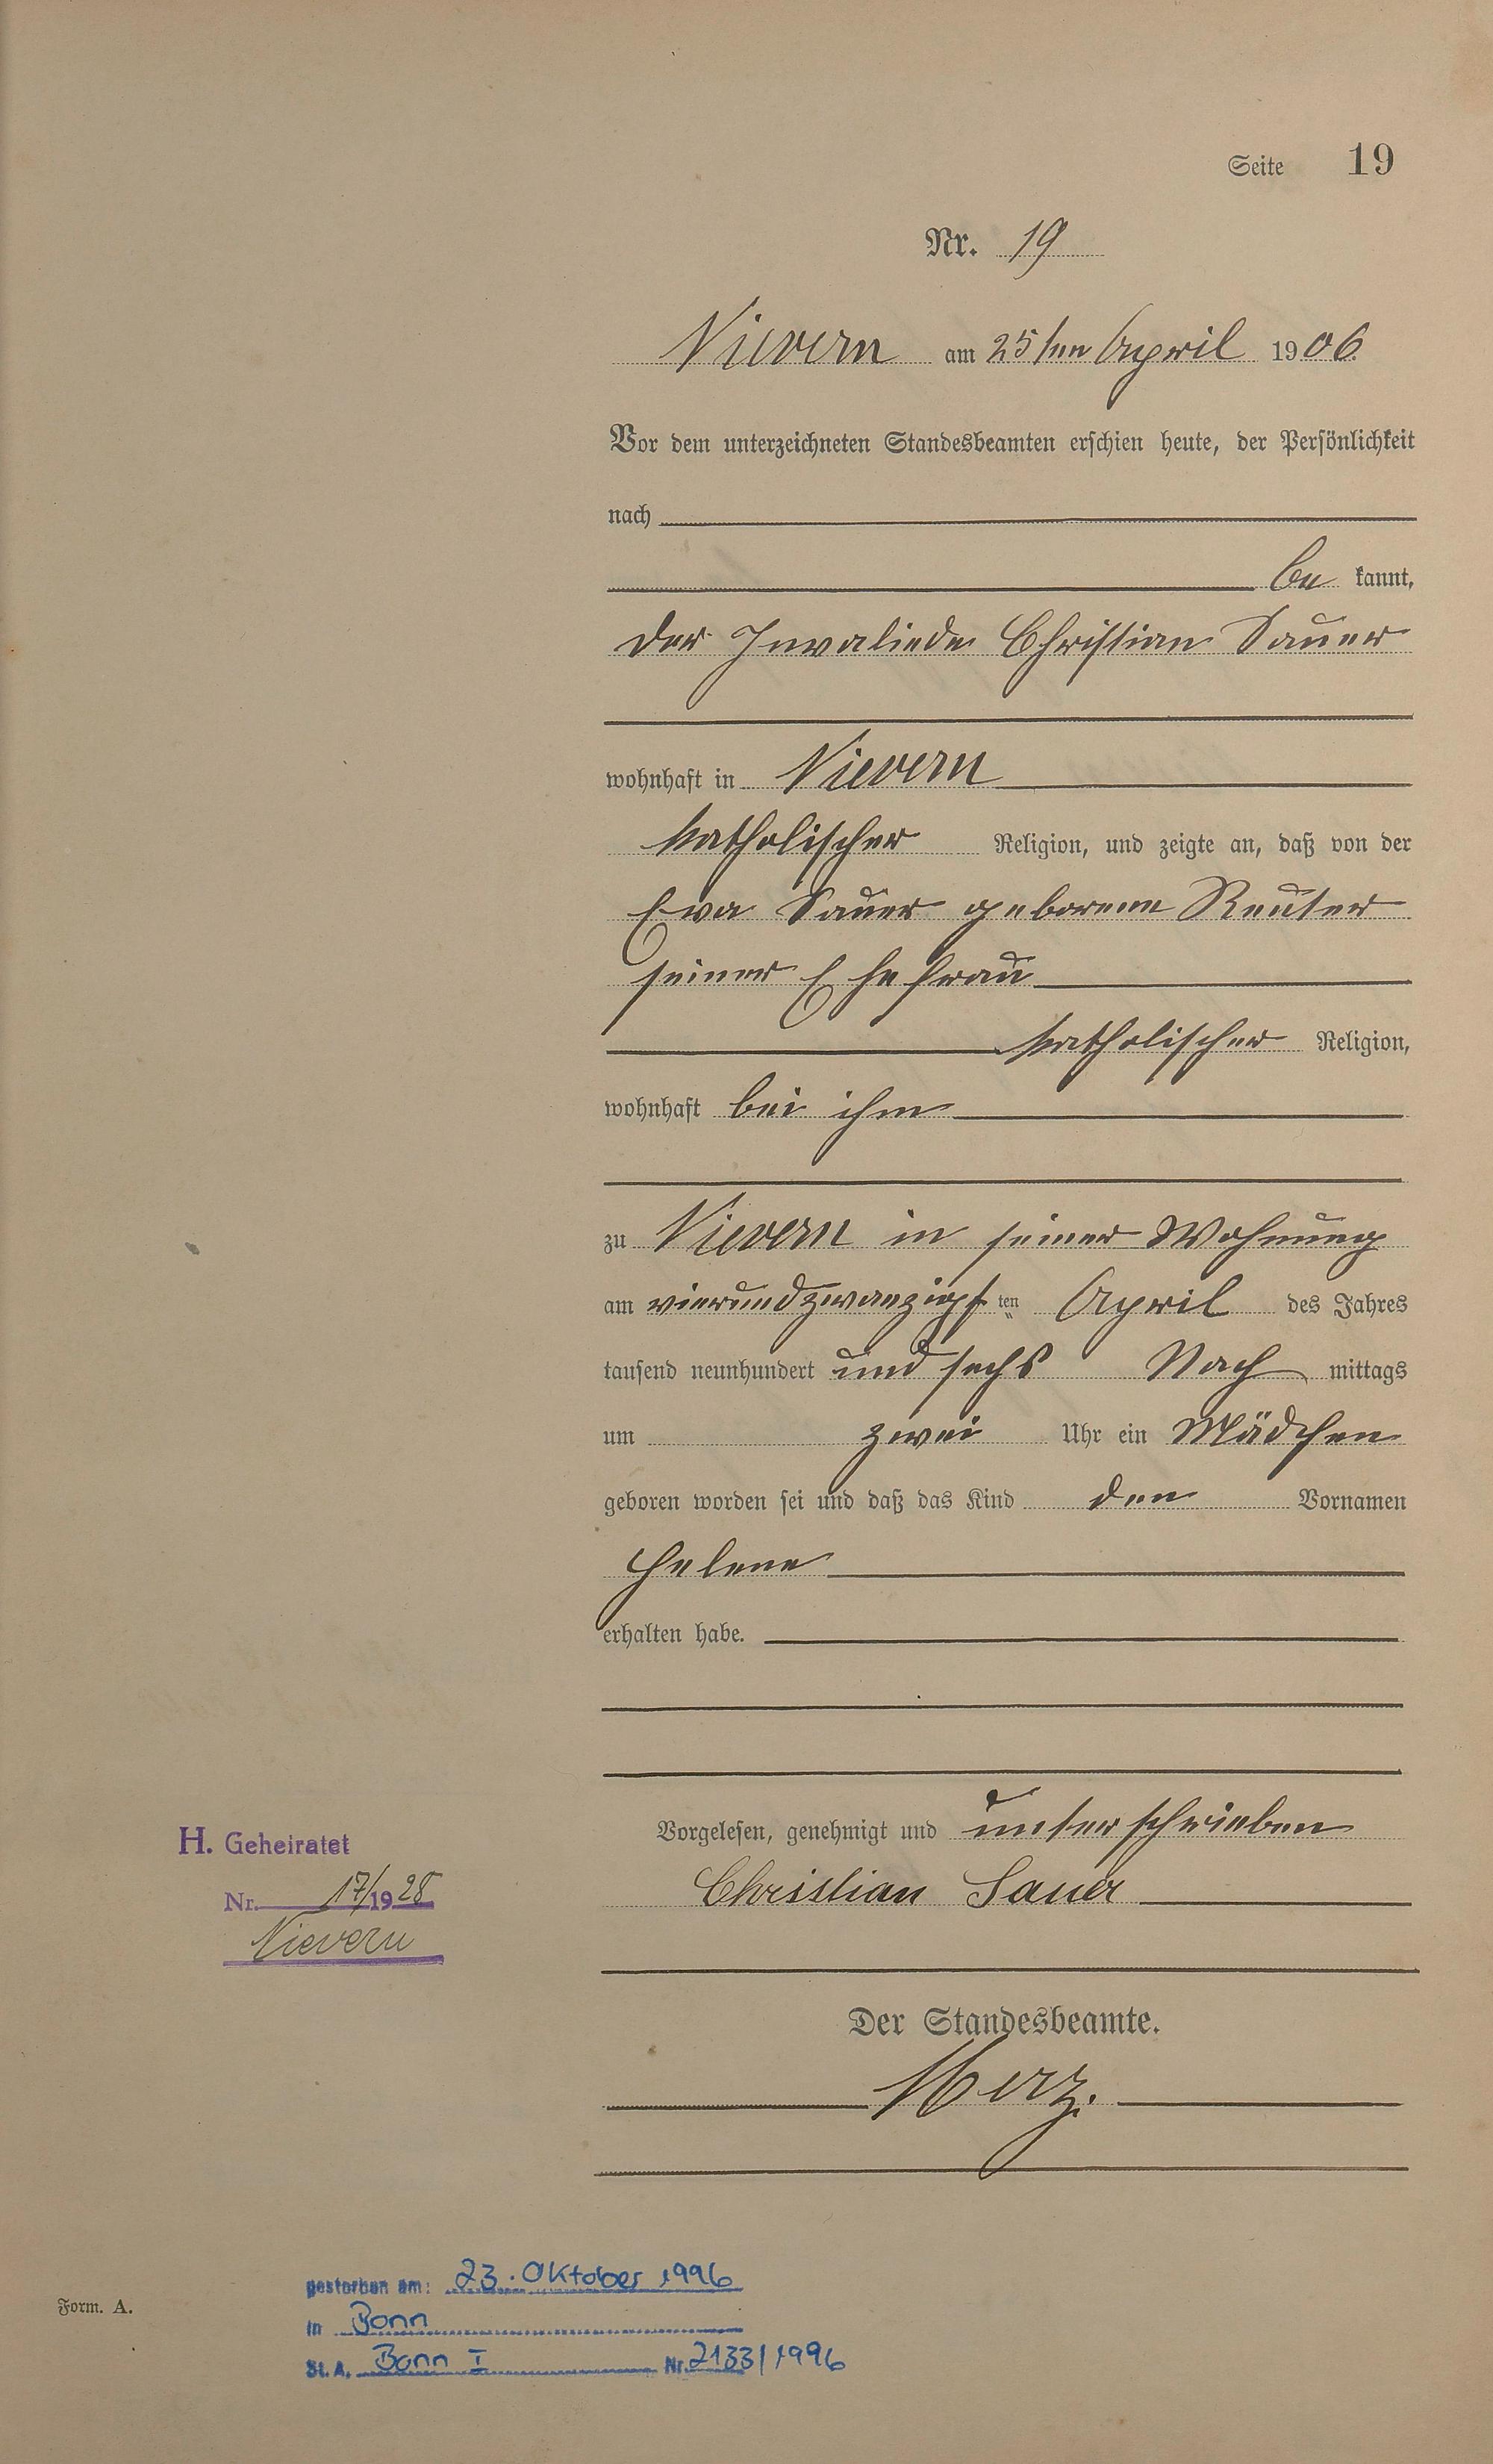 Seite 19
Nr. 19
Nievern am 25ten April 1906.
Vor dem unterzeichneten Standesbeamten erschien heute, der Persönlichkeit
nach
be kannt,
der Invaliede Christian Sauer
wohnhaft in Nievern
katholischer Religion, und zeigte an, daß von der
Eva Sauer geborene Reuter
seiner Ehefrau
katholischer Religion,
wohnhaft bei ihm
zu Nievern in seiner Wohnung
am vierundzwanzigs ten April des Jahres
tausend neunhundert und sechs Nach mittags
um zwei Uhr ein Mädchen
geboren worden sei und daß das Kind den Vornamen
Helene
erhalten habe.
Vorgelesen, genehmigt und unterschrieben
Christian Sauer
Der Standesbeamte.
Merz.
H. Geheiratet
Nr. 17/1928
Nievern
gestorben am: 23. Oktober 1996
in Bonn
St. A. Bonn I Nr. 2133/1996
Form. A.